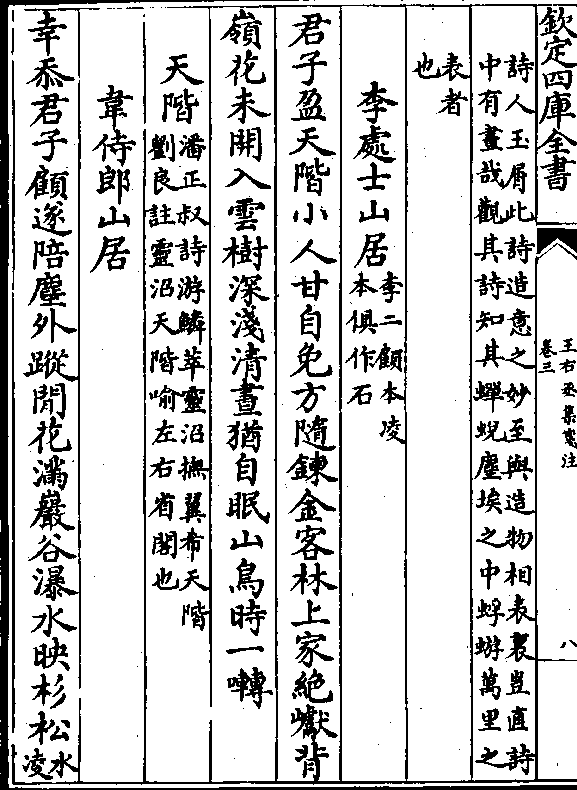 欽定四庫全書
王右丞集箋注
卷三
八
詩人玉屑此詩造意之妙至與造物相表裏豈直詩
中有畫哉觀其詩知其蟬蛻塵埃之中蜉蝣萬里之
表者
也
李處士山居
李二顧本凌
本俱作石
君子盈天階小人甘自免方隨鍊金客林上家絶巘背
嶺花未開入雲樹深淺清晝猶自眠山鳥時一囀
天階
潘正叔詩游鱗萃靈沼撫翼希天階
劉良註靈沼天階喻左右省閣也
韋侍郎山居
幸忝君子顧遂陪塵外蹤閒花滿巖谷瀑水映杉松
水
凌